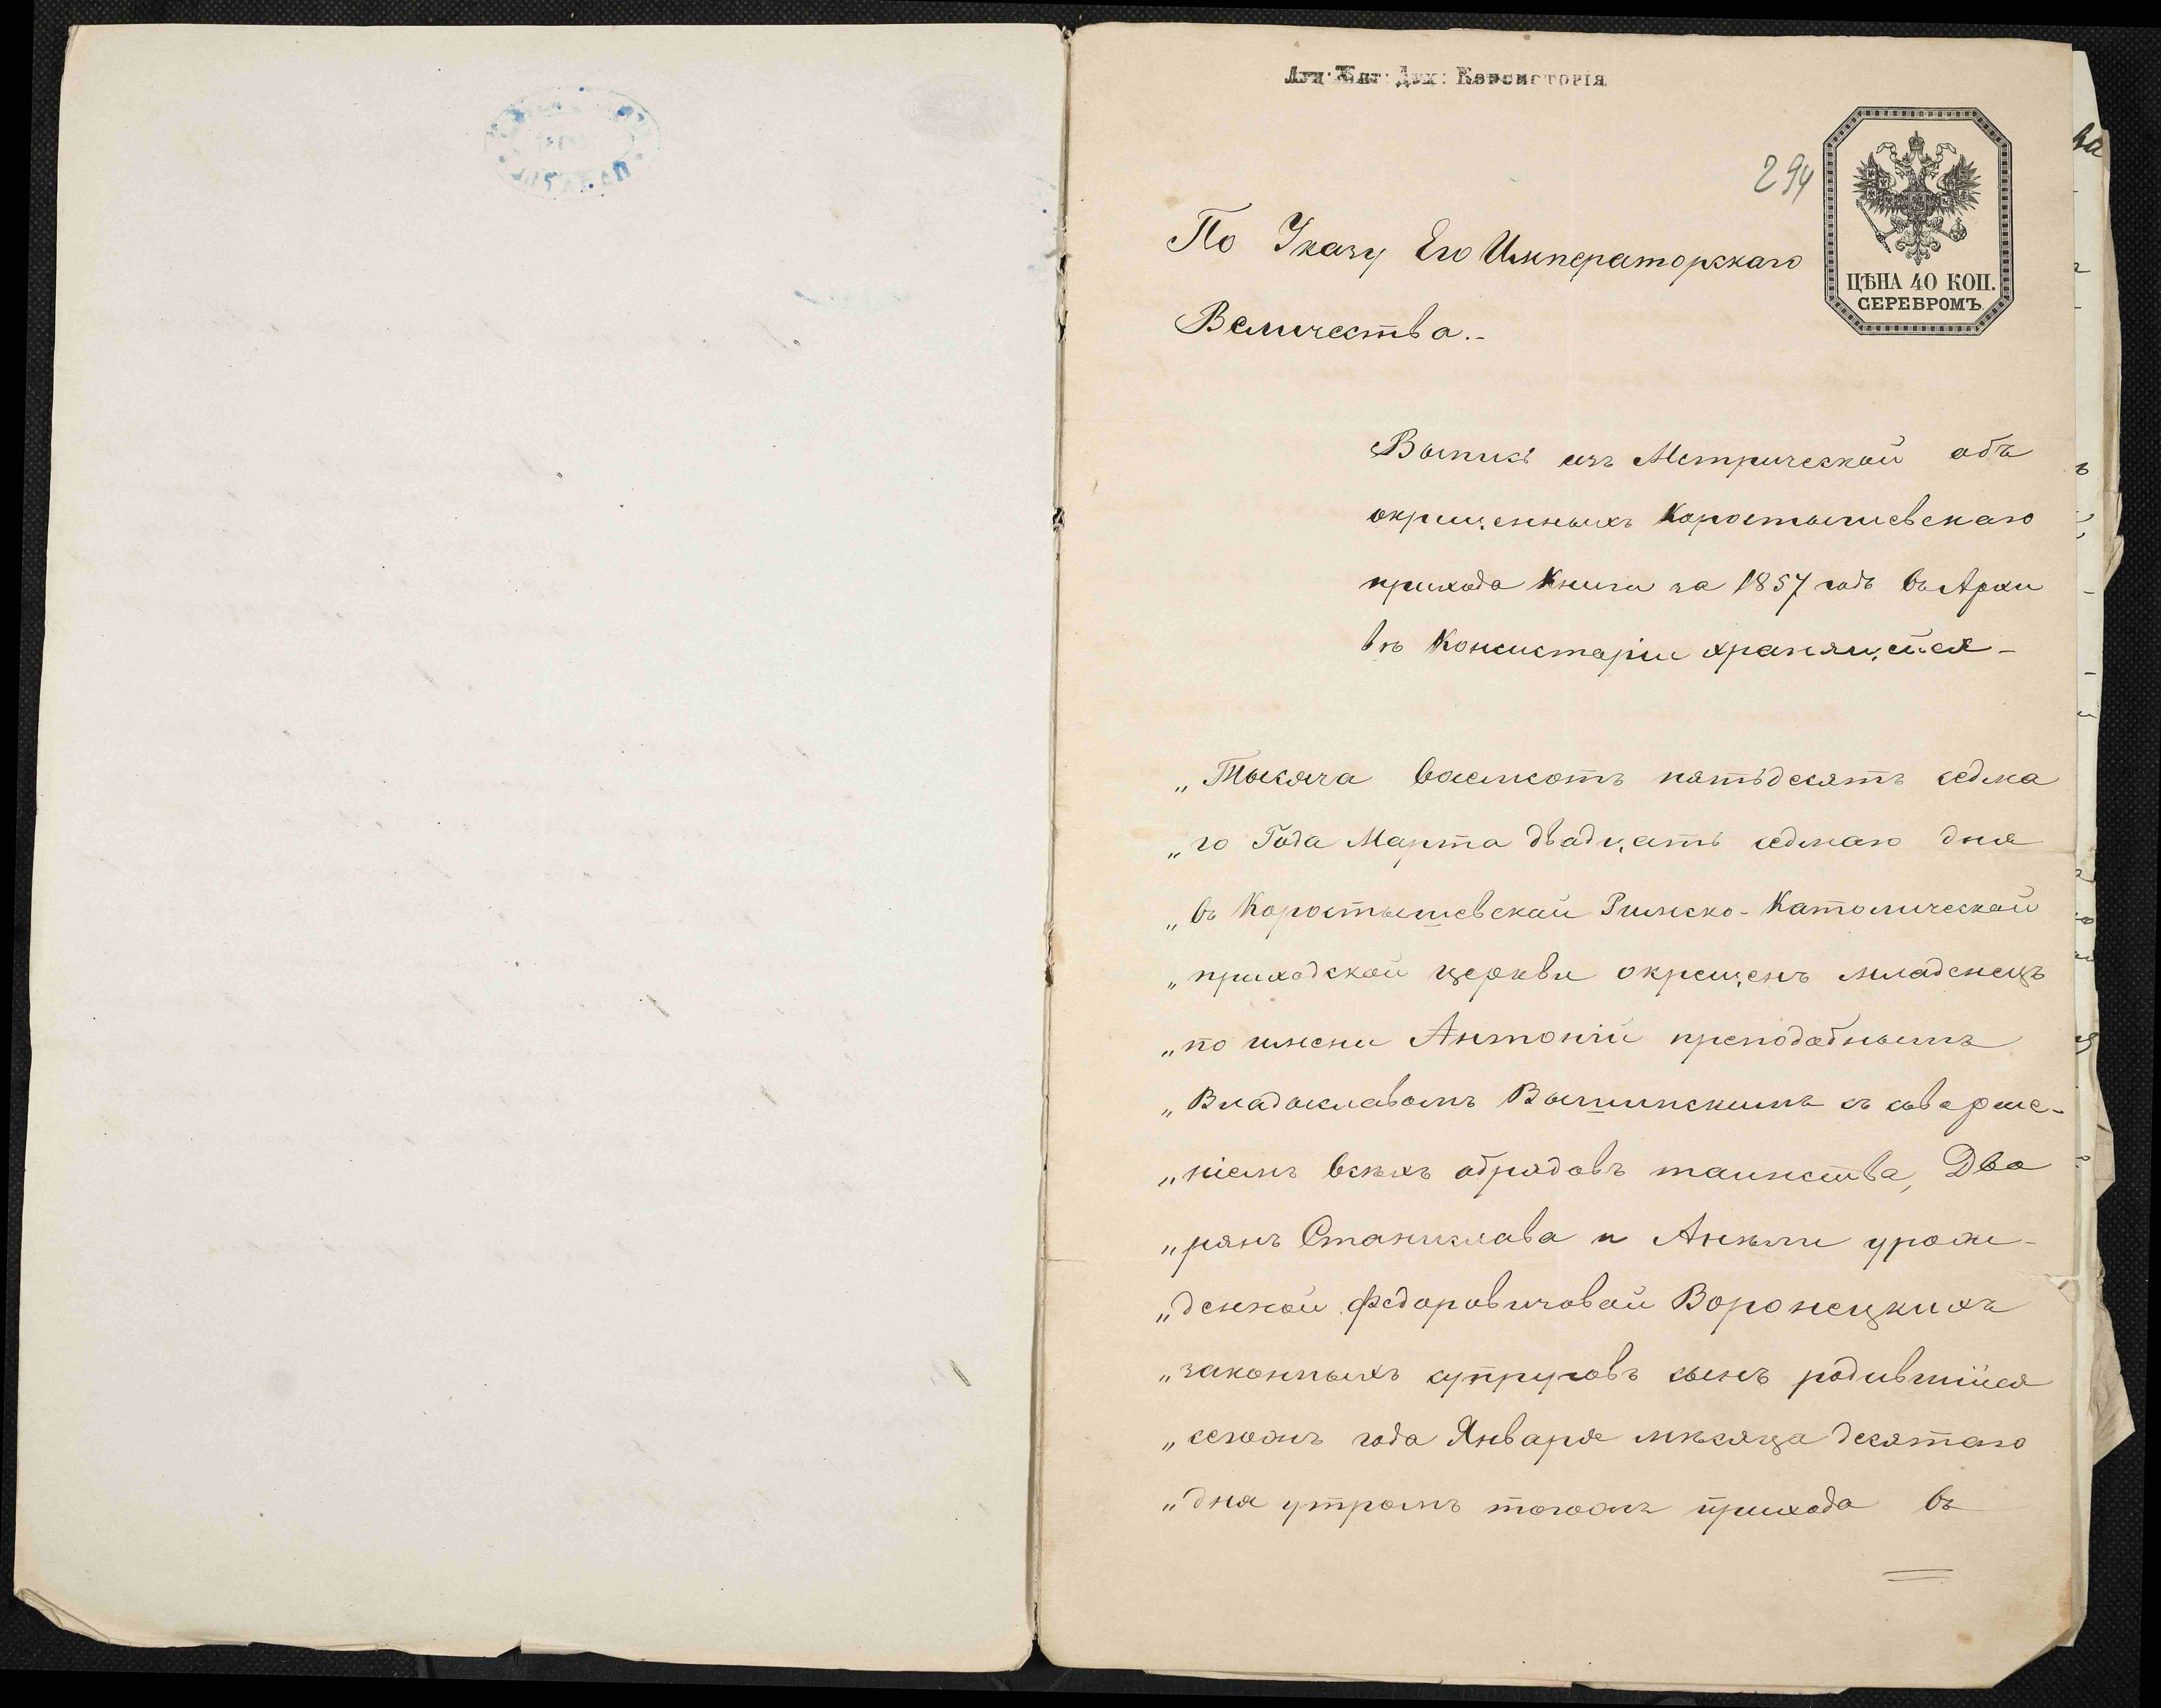 Луц: Жит: Дух: Консисторія
294
ЦѢНА 40 КОП.
СЕРЕБРОМЪ
По Указу Его Императорскаго
Величества.-
Выпись изъ Метрической объ
окрещенныхъ Коростышевскаго
прихода Книги за 1857 годъ въ Архи
вѣ Консисторіи хранящейся-
„Тысяча восемсотъ пятьдесятъ седма
„го Года Марта двадцать седмаго дня
„въ Коростышевской Римско-Католической
„приходской церкви окрещенъ младенецъ
„по имени Антоній преподобнымъ
„Владыславомъ Вышинскимъ съ соверше-
„ніемъ всѣхъ обрядовъ таинства, Дво
„рянъ Станислава и Анѣли урож-
„денной Федоровичовой Воронецкихъ
„законныхъ супруговъ сынъ родившійся
„сегожъ года Января мѣсяца десятаго
„дня утромъ тогожъ прихода въ